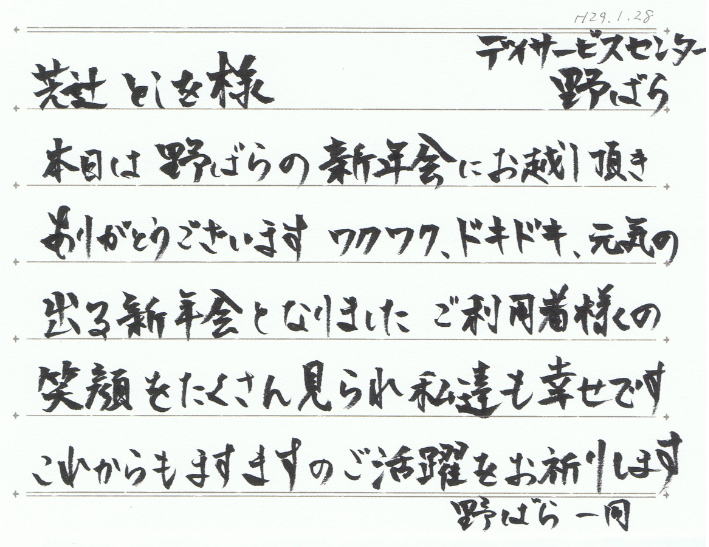 H29.1.28
デイサービスセンター
荒辻 としを様 野ばら
本日は 野ばらの新年会にお越し頂き
ありがとうございます ワクワク、ドキドキ、元気の
出る新年会となりました ご利用者様の
笑顔もたくさん見られ私達も幸せです
これからもますますのご活躍をお祈りします
野ばら 一同